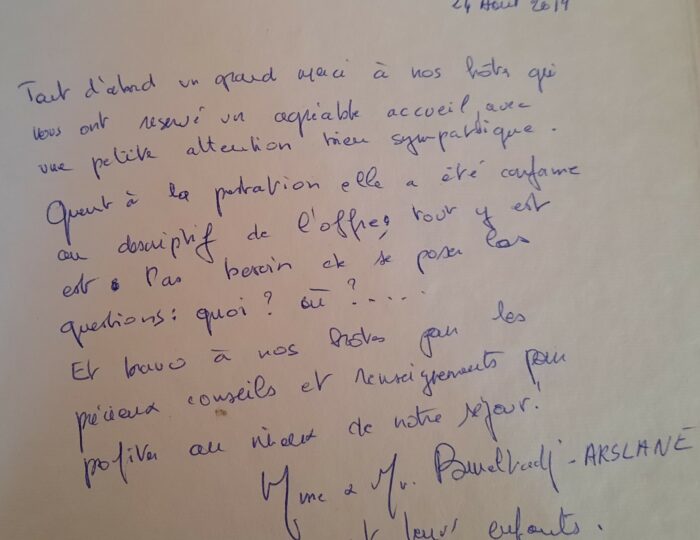 24 Août 2019
Tout d'abord un grand merci à nos hôtes qui
nous ont reservé un agréable accueil, avec
une petite attention bien sympathique.
Quant à la prestation elle a été conforme
au descriptif de l'offre, tout y est
est. Pas besoin de se poser les
questions: quoi? où?.....
Et bravo à nos hôtes pour les
précieux conseils et renseignements pour
profiter au mieux de notre séjour!
Mme & Mr. - ARSLANE
et leurs enfants.